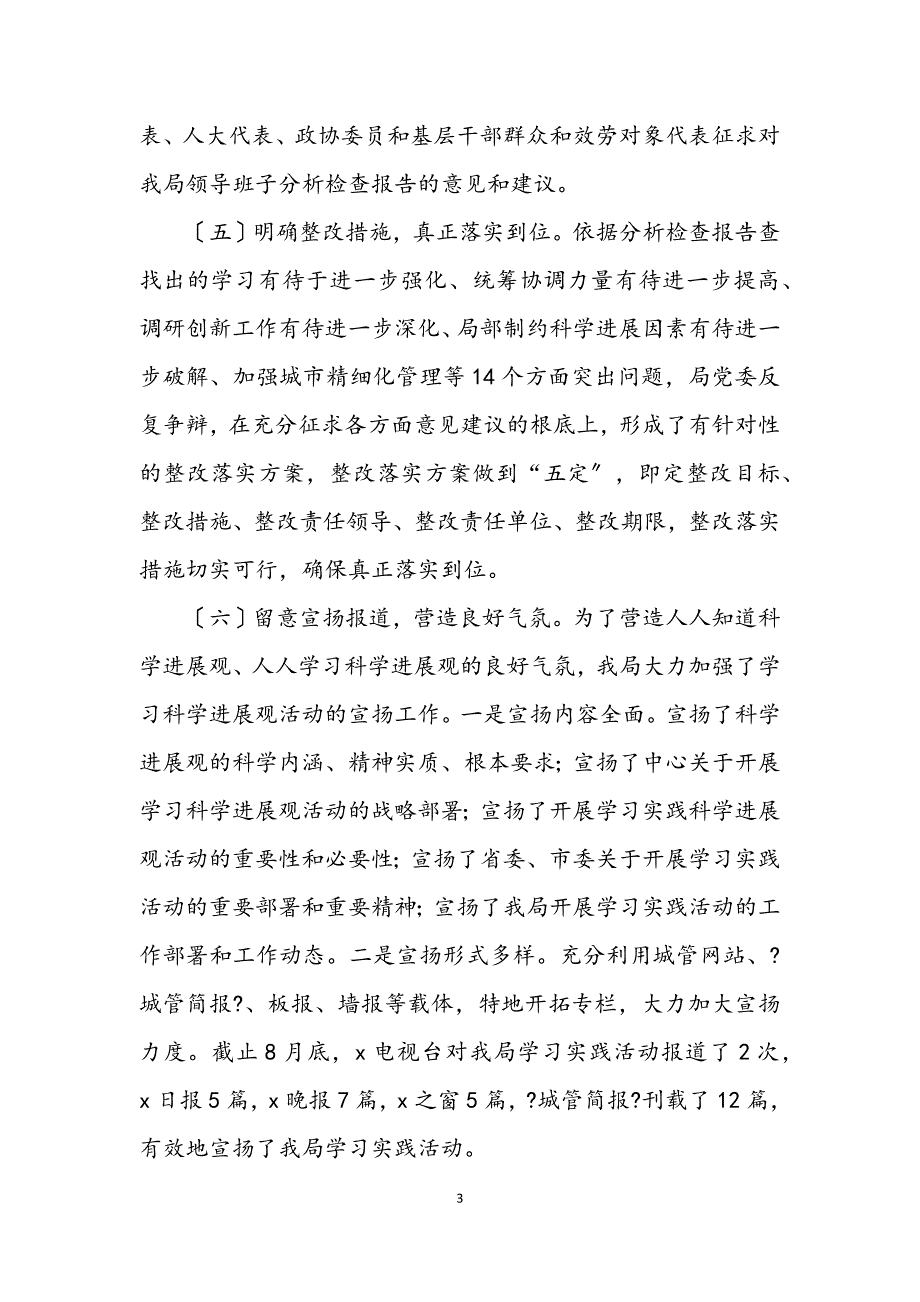 表、人大代表、政协委员和基层干部群众和效劳对象代表征求对
我局领导班子分析检查报告的意见和建议。
〔五〕明确整改措施，真正落实到位。依据分析检查报告查
找出的学习有待于进一步强化、统筹协调力量有待进一步提高、
调研创新工作有待进一步深化、局部制约科学进展因素有待进一
步破解、加强城市精细化管理等14个方面突出问题，局党委反
复争辩，在充分征求各方面意见建议的根底上，形成了有针对性
的整改落实方案，整改落实方案做到“五定〞，即定整改目标、
整改措施、整改责任领导、整改责任单位、整改期限，整改落实
措施切实可行，确保真正落实到位。
〔六〕留意宣扬报道，营造良好气氛。为了营造人人知道科
学进展观、人人学习科学进展观的良好气氛，我局大力加强了学
习科学进展观活动的宣扬工作。一是宣扬内容全面。宣扬了科学
进展观的科学内涵、精神实质、根本要求；宣扬了中心关于开展
学习科学进展观活动的战略部署；宣扬了开展学习实践科学进展
观活动的重要性和必要性；宣扬了省委、市委关于开展学习实践
活动的重要部署和重要精神；宣扬了我局开展学习实践活动的工
作部署和工作动态。二是宣扬形式多样。充分利用城管网站、?
城管简报?、板报、墙报等载体，特地开拓专栏，大力加大宣扬
力度。截止8月底，x电视台对我局学习实践活动报道了2次，
x日报5篇，x晚报7篇，x之窗5篇，?城管简报?刊载了12篇，
有效地宣扬了我局学习实践活动。
3